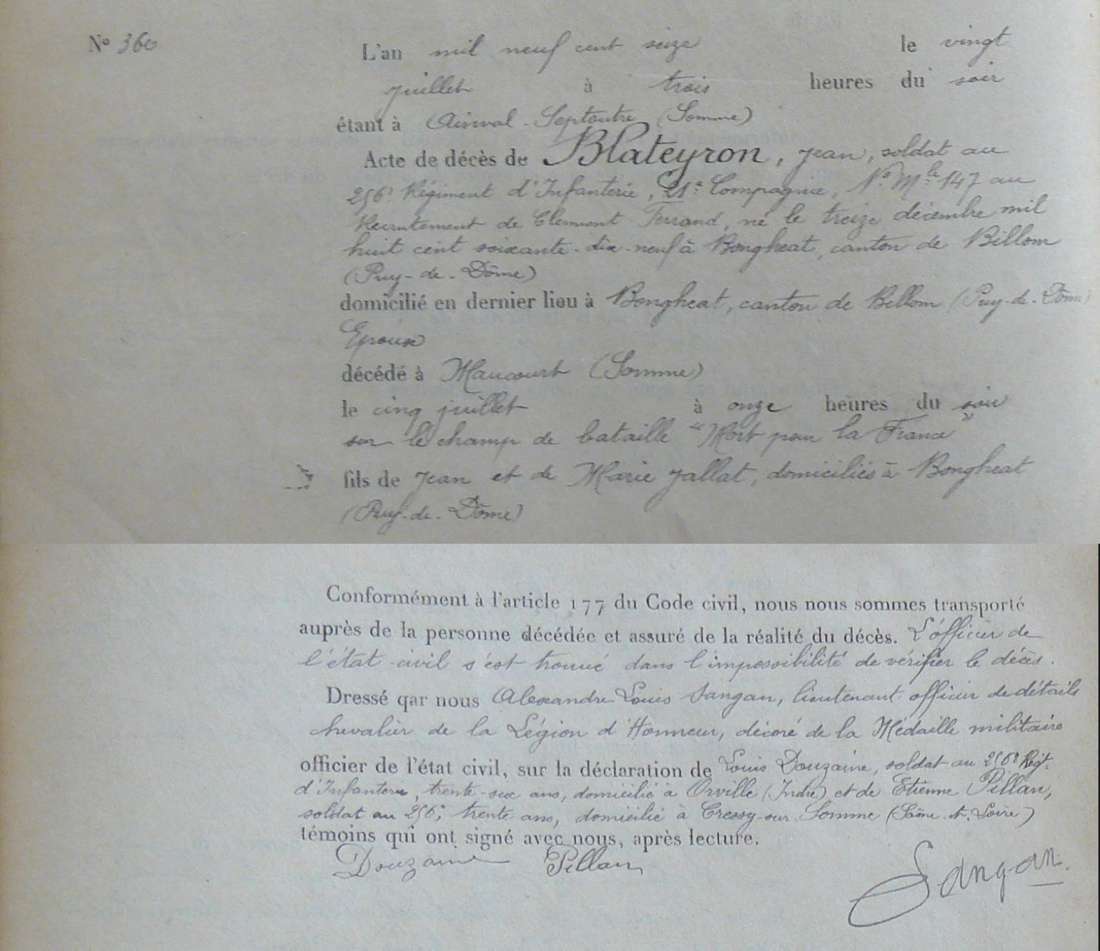 N° 360
L'an mil neuf cent seize le vingt
juillet à trois heures du soir
étant à Ainval-Septoutre (Somme)
Acte de décès de Blateyron, Jean, soldat au
256e Régiment d'Infanterie, 21e Compagnie, No Mle 147 au
Recrutement de Clermont-Ferrand, né le treize décembre mil
huit cent soixante-dix-neuf à Bongheat, canton de Billom
(Puy-de-Dôme)
domicilié en dernier lieu à Bongheat, canton de Billom (Puy-de-Dôme)
Epoux
décédé à Maucourt (Somme)
le cinq juillet à onze heures du soir
sur le champ de bataille "Mort pour la France"
fils de Jean et de Marie Jallat, domiciliés à Bongheat
(Puy-de-Dôme)
Conformément à l'article 177 du Code civil, nous nous sommes transporté
auprès de la personne décédée et assuré de la réalité du décès. L'officier de
l'état-civil s'est trouvé dans l'impossibilité de vérifier le décès.
Dressé qar nous Alexandre Louis Sangan, lieutenant officier de détails
chevalier de la Légion d'Honneur, décoré de la Médaille militaire
officier de l'état civil, sur la déclaration de Louis Douzaine, soldat au 256e Régt.
d'Infanterie, trente-six ans, domicilié à Orville (Indre) et de Etienne Pillan,
soldat au 256e, trente ans, domicilié à Cressy-sur-Somme (Saône-et-Loire)
témoins qui ont signé avec nous, après lecture.
Douzaine Pillan
Sangan